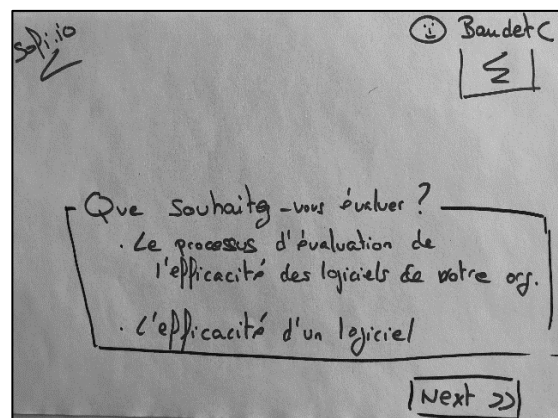 sopi.io
Baudet C
Que souhaitez-vous évaluer ?
. Le processus d'évaluation de
l'efficacité des logiciels de votre org.
. L'efficacité d'un logiciel
Next >>